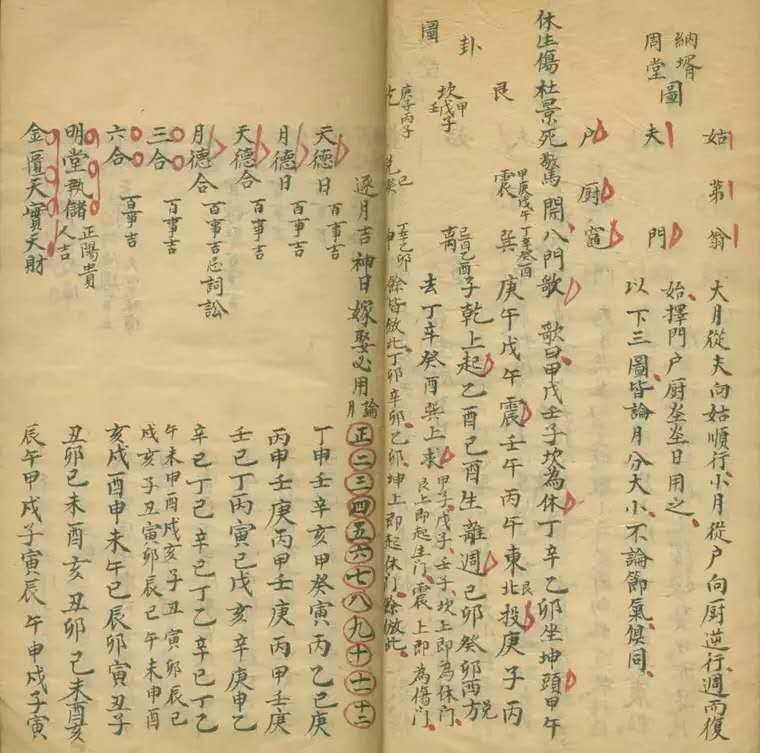 納壻周堂圖
姑 第 翁
夫 門
戶 厨 竈
大月從夫向姑順行小月從戶向厨逆行週而復
始擇門戶厨灶日用之
以下三圖皆論月分大小不論節氣俱同
休生傷杜景死驚開八門歌 歌曰甲戊壬子坎為休丁辛乙卯坐坤頭甲午
庚午戊午震壬午丙午東北艮投庚子丙
子乾上起乙酉己酉生離週己卯癸卯西方兌
去丁辛癸酉巽上求
甲子戊子壬子坎上即為休門
艮上即起生門震上即為傷門
餘皆倣此丁卯辛卯乙卯坤上即起休門餘倣此
卦圖
艮 震 巽
甲庚戊午
丁辛癸酉
坎 甲戊子壬
離 己酉乙酉
庚子丙子
坤 丁辛乙卯
逐月吉神日嫁娶必用 論月 正二三四五六七八九十十一十二
天德日 百事吉 丁申壬辛亥甲癸寅丙乙己庚
月德日 百事吉 丙甲壬庚丙甲壬庚丙甲壬庚
天德合 百事吉 壬己丁丙寅己戊亥辛庚申乙
月德合 百事吉忌詞訟 辛己丁乙辛己丁乙辛己丁乙
三合 百事吉 午未申酉戌亥子丑寅卯辰巳
戌亥子丑寅卯辰巳午未申酉
六合 百事吉 亥戌酉申未午巳辰卯寅丑子
明堂執儲 正陽貴人吉 丑卯巳未酉亥丑卯巳未酉亥
金匱天寶天財 辰午申戌子寅辰午申戌子寅